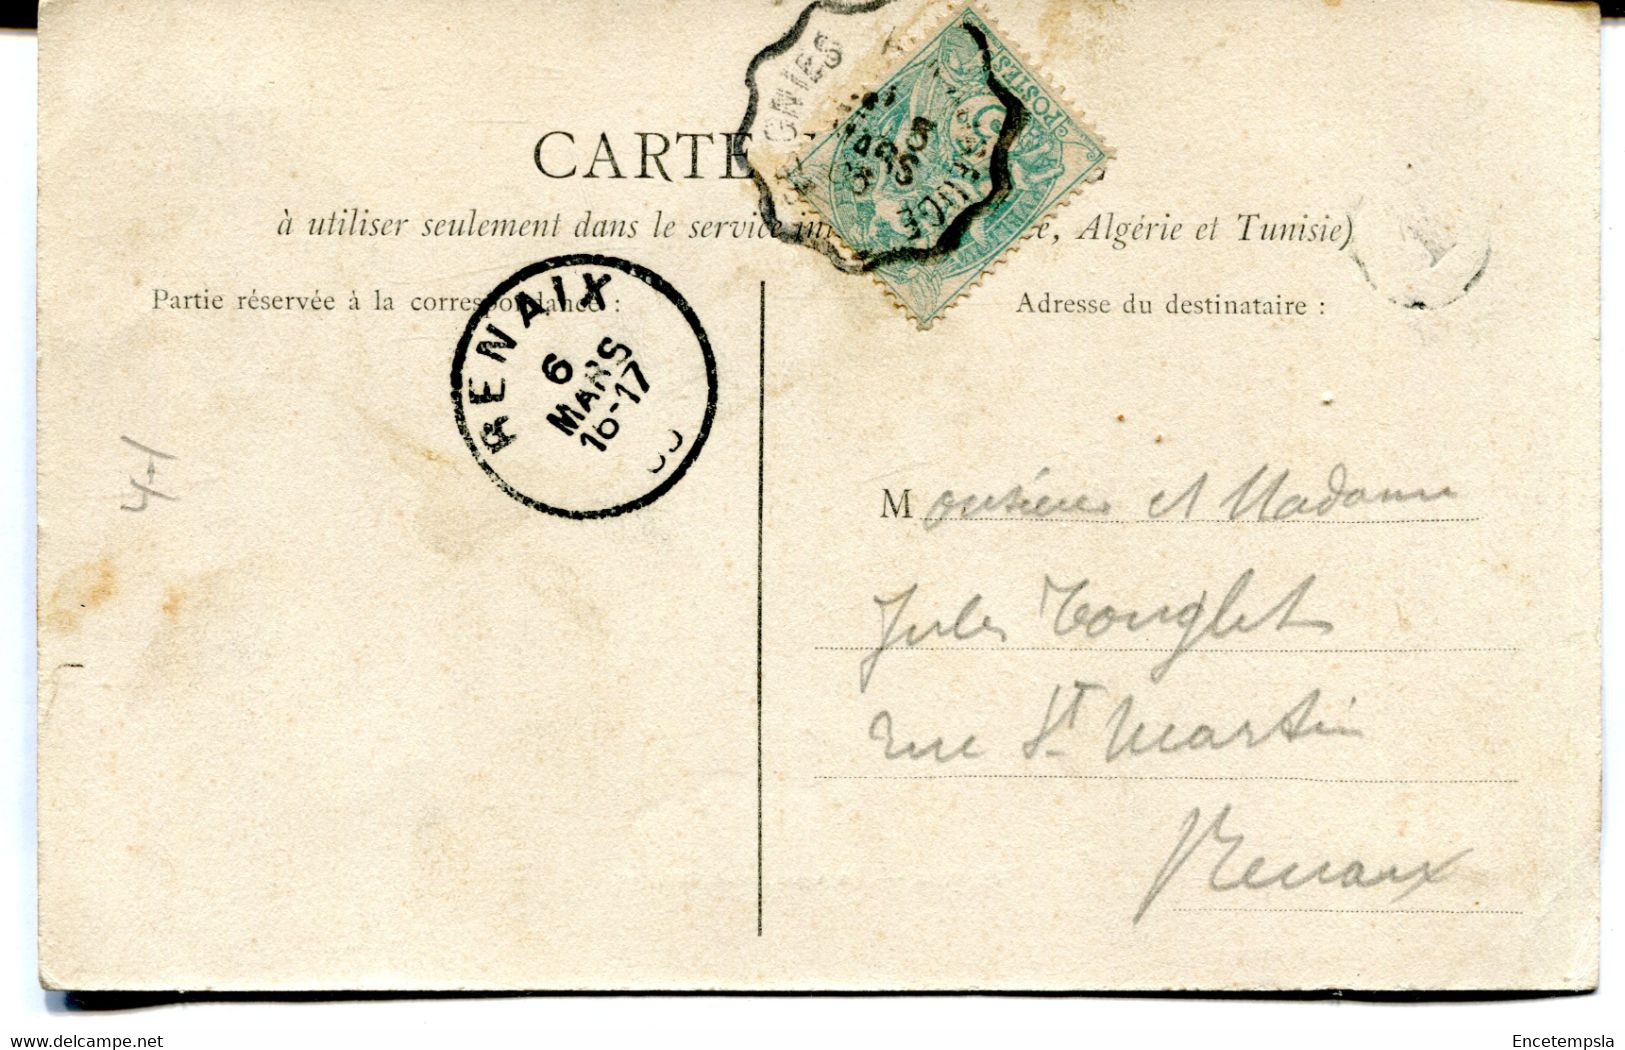 CARTE
à utiliser seulement dans le service in e, Algérie et Tunisie)
Partie réservée à la correspondance :
Adresse du destinataire :
POSTES
5
GNIES
RENAIX
6
MARS
16-17
4-1
Monsieur et Madame
Jules Tonglet
rue St Martin
Renaix
Delcampe.net
Encetempsla